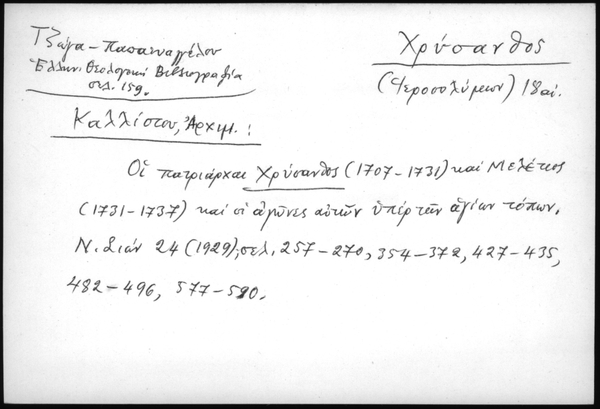 Τζώγα – Παπαευαγγέλου
Ἑλλην. Θεολογική Βιβλιογραφία
σελ. 159.
Χρύσανθος
(Ἱεροσολύμων) 18 αἰ.
Καλλίστου, Ἀρχιμ. :
Οἱ πατριάρχαι Χρύσανθος (1707–1731) καί Μελέτιος
(1731–1737) καί οἱ ἀγῶνες αὐτῶν ὑπέρ τῶν ἁγίων τόπων.
Ν. Σιών 24 (1929), σελ. 257–270, 354–372, 427–435,
482–496, 577–590.